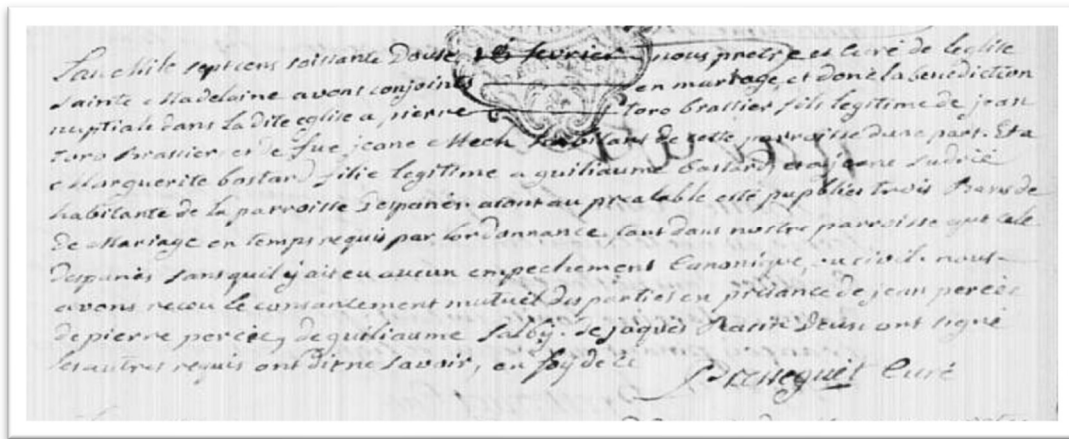 L'an Mile sept cens soissante Douse, fevrier nous pretre et Curé de leglise
Sainte Madelaine avons conjoints en mariage, et donè la benediction
nuptiale dans la dite eglise a pierre toro brassier fils legitime de jean
toro Brassier, et de fue jeane habitans de cette parroisse dune part. Et a
Marguerite bastard filie legitime a guiliaume bastard, et a jeane sudrié
habitante de la parroisse aiont au prealable esté pupplies trois Bans de
de Mariage en temps requis par lordonnance tant dans nostre parroisse que cele
despanès sans quil y ait eu aucun empechement Canonique, ou civil nous
avons receu le consantement mutuel des parties en presance de jean
de pierre de guiliaume de jaques D'eux ont signé
les autres requis ont dit ne savoir, en foy de ce Curé